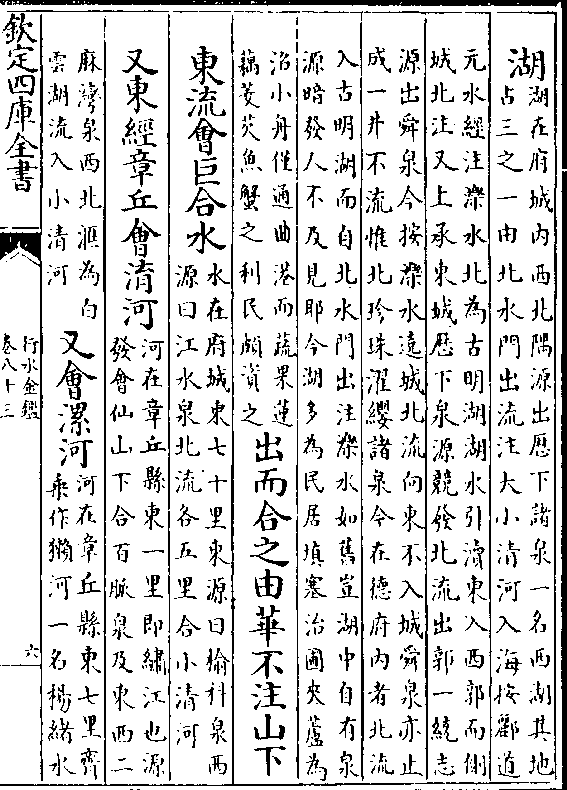 湖
湖在府城内西北隅源出歴下諸泉一名西湖其地
占三之一由北水門出流注大小清河入海按酈道
元水經注濼水北為古明湖湖水引瀆東入西郭而側
城北注又上承東城歴下泉源競發北流出郭一統志
源出舜泉今按濼水遶城北流向東不入城舜泉亦止
成一井不流惟北珍珠濯纓諸泉今在德府内者北流
入古明湖而自北水門出注濼水如舊豈湖中自有泉
源暗發人不及見耶今湖多為民居填塞治圃夾蘆為
沼小舟僅通曲港而蔬果蓮
藕菱芡魚蟹之利民頗資之
出而合之由華不注山下
東流會巨合水
水在府城東七十里東源曰榆科泉西
源曰江水泉北流各五里合小清河
又東經章丘會淯河
河在章丘縣東一里即繡江也源
發會仙山下合百脈泉及東西二
麻灣泉西北滙為白
雲湖流入小清河
又會漯河
河在章丘縣東七里齊
乗作獺河一名楊緒水
欽定四庫全書
行水金鑑
卷八十三
六